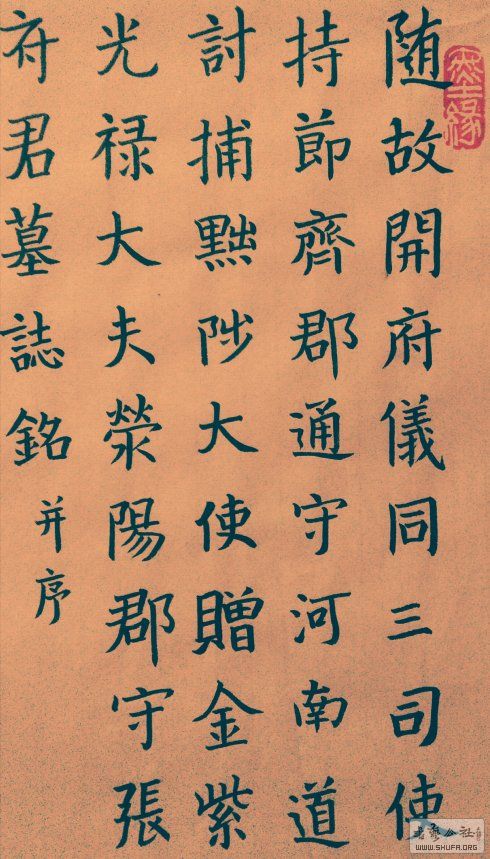 随故開府儀同三司使
持節齊郡通守河南道
討捕黜陟大使贈金紫
光禄大夫滎陽郡守張
府君墓誌銘并序
WWW.SHUFA.ORG